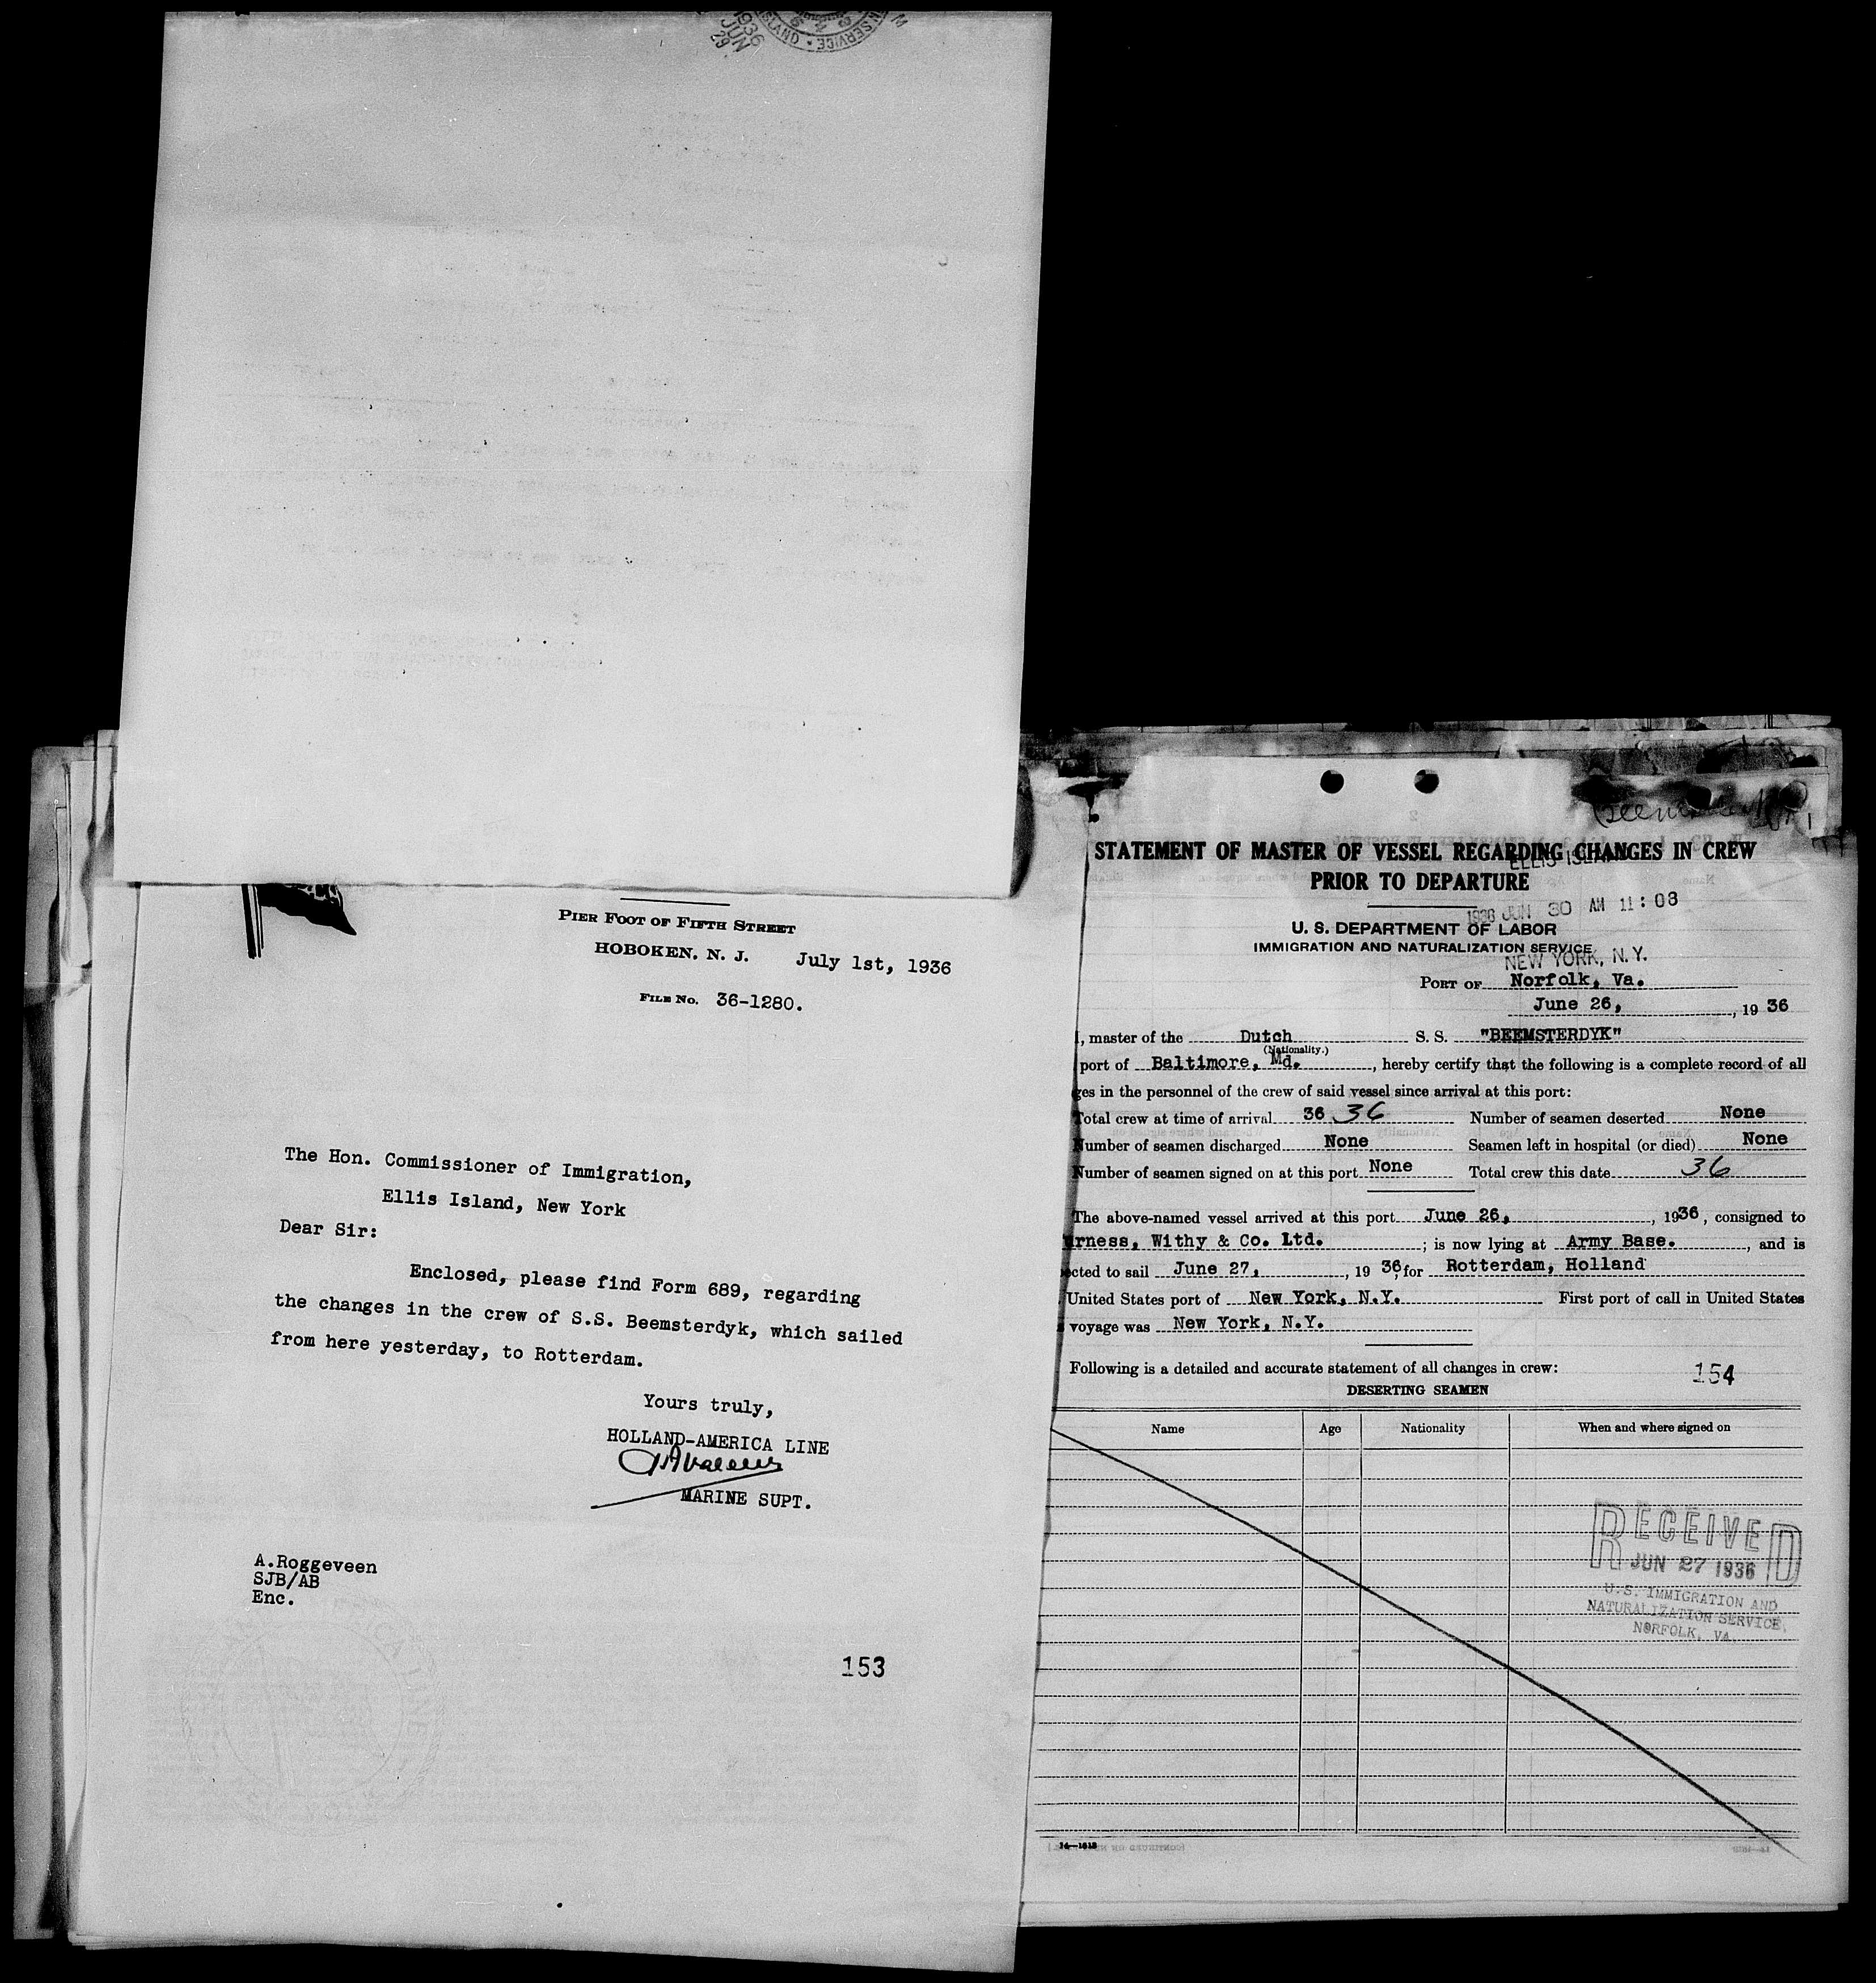 1936
JUN
29
ISLAND • SERVICE
PIER FOOT OF FIFTH STREET
HOBOKEN, N. J. July 1st, 1936
FILE NO. 36-1280.
The Hon. Commissioner of Immigration,
Ellis Island, New York
Dear Sir:
Enclosed, please find Form 689, regarding
the changes in the crew of S.S. Beemsterdyk, which sailed
from here yesterday, to Rotterdam.
Yours truly,
HOLLAND-AMERICA LINE
MARINE SUPT.
A.Roggeveen
SJB/AB
Enc.
153
STATEMENT OF MASTER OF VESSEL REGARDING CHANGES IN CREW
ELLIS ISLAND
PRIOR TO DEPARTURE
1936 JUN 30 AM 11:08
U. S. DEPARTMENT OF LABOR
IMMIGRATION AND NATURALIZATION SERVICE
NEW YORK, N.Y.
PORT OF Norfolk, Va.
June 26, , 19 36
I, master of the Dutch S. S. "BEEMSTERDYK"
(Nationality.)
port of Baltimore, Md. , hereby certify that the following is a complete record of all
ges in the personnel of the crew of said vessel since arrival at this port:
Total crew at time of arrival 36 36 Number of seamen deserted None
Number of seamen discharged None Seamen left in hospital (or died) None
Number of seamen signed on at this port None Total crew this date 36
The above-named vessel arrived at this port June 26, , 1936, consigned to
urness, Withy & Co. Ltd. ; is now lying at Army Base. , and is
ected to sail June 27, , 19 36, for Rotterdam, Holland
United States port of New York, N.Y. First port of call in United States
voyage was New York, N.Y.
Following is a detailed and accurate statement of all changes in crew: 154
DESERTING SEAMEN
Name Age Nationality When and where signed on
RECEIVED
JUN 27 1936
U.S. IMMIGRATION AND
NATURALIZATION SERVICE,
NORFOLK, VA.
14—1618